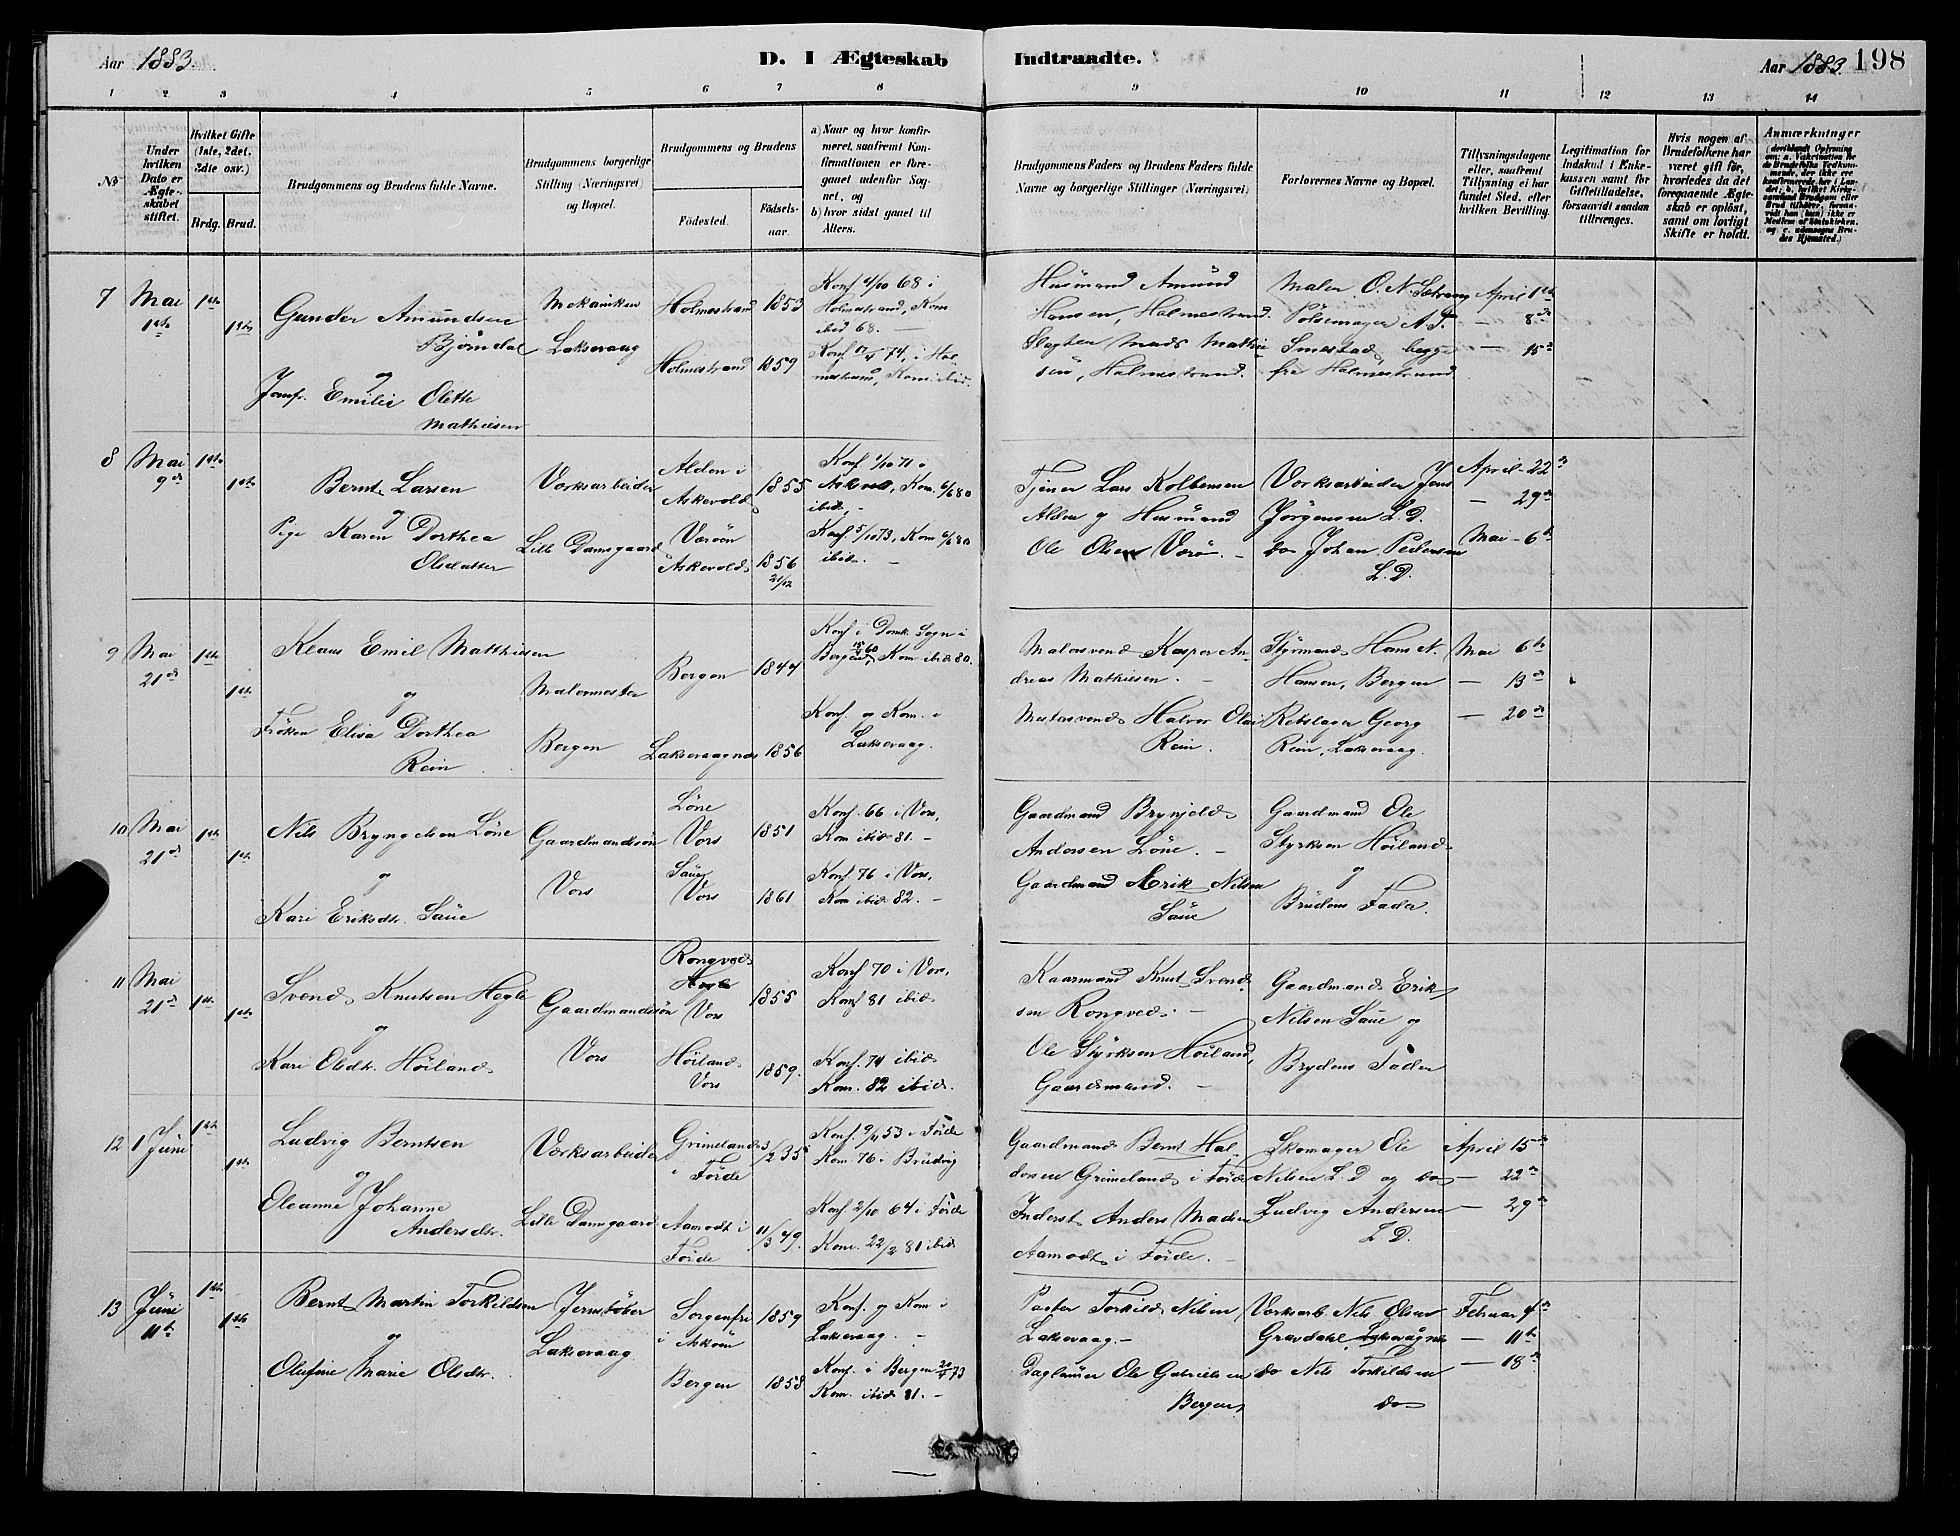 Aar 1883. D. I Ægteskab Indtraadte. Aar 1883. 198
1 2 3 4 5 6 7 8 9 10 11 12 13 14
No
Under hvilken Dato er Ægteskabet stiftet.
Hvilket Gifte (1ste, 2det, 3die osv.)
Brdg. Brud.
Brudgommens og Brudens fulde Navne.
Brudgommens borgerlige Stilling (Næringsvei) og Bopæl.
Brudgommens og Brudens
Fødested. Fødselsaar.
a) Naar og hvor konfirmeret, saafremt Konfirmationen er foregaaet udenfor Sognet, og
b) hvor sidst gaaet til Alters.
Brudgommens Faders og Brudens Faders fulde Navne og borgerlige Stillinger (Næringsvei)
Forlovernes Navne og Bopæl.
Tillysningsdagene eller, saafremt Tillysning ei har fundet Sted, efter hvilken Bevilling.
Legitimation for Indskud i Enkekassen samt for Giftetilladelse, forsaavidt saadan tiltrænges.
Hvis nogen af Brudefolkene har været gift før, hvorledes da det foregaaende Ægteskab er opløst, samt om lovligt Skifte er holdt.
Anmærkninger
7 Mai 1ste 1ste 1ste
Gunder Amundsen
Bjørndal
og
Jomfr. Emilie Olette
Mathiesen
Mekaniker
Laksevaag
Holmestrand 1853
Holmestrand 1859
Konf 4/10 68 i
Holmestrand, Kom
ibid 68.
Konf 74, i Holmestrand, Kom ibid.
Husmand Amund
Hansen, Holmestrand.
Slagter Mads Mathiesen, Holmestrand.
Maler O. N. Sætrang
Pølsemager A. T.
Smestad, begge
fra Holmestrand
April 1ste
— 8de
— 15de
8 Mai 9de 1ste 1ste
Bernt Larsen
og
Pige Karen Dorthea
Olsdatter
Værksarbeider
Lille Damsgaard
Alden i
Askevold 1855
Værøen
Askevold 1856 21/12
Konf 1/10 71 i
Askvold, Kom. 6/6 80
ibid. -
Konf. 5/10 73, Kom 6/6 80
ibid. -
Tjener Lars Kolbensen
Alden og Husmand
Ole Olsen Værø. -
Værksarbeider Jens
Jørgensen L.D.
do Johan Pedersen
L.D.
April 22de
— 29de
Mai 6te
9 Mai 21de 1ste 1ste
Klaus Emil Matthiesen
og
Frøken Elisa Dorthea
Rein
Malermester
Bergen
Bergen 1844
Laksevaagnes 1856
Konf. i Domk. Sogn i
Bergen 60, Kom ibid 80.
Konf. og Kom. i
Laksevaag.
Malersvend Kasper Andreas Mathiesen. -
Mestersvend Halvor Olai
Rein.
Styrmand Hans N.
Hansen, Bergen
Rebslager Georg
Rein, Laksevaag.
Mai 6te
— 13de
— 20de
10 Mai 21de 1ste 1ste
Nils Bryngelsen Løne
og
Kari Eriksdtr. Saue
Gaardmandssøn
Vors
Løne
Vors 1851
Saue
Vors 1861
Konf. 66 i Vors,
Kom ibid 81. -
Konf. 76 i Vors,
Kom ibid 82. -
Gaardmand Brynjeld
Andersen Løne. -
Gaardmand Erik Nilsen
Saue
Gaardmand Ole
Styrksen Høiland
og
Brudens Fader.
11 Mai 21de 1ste 1ste
Svend Knutsen Hegle
og
Kari Olsdtr. Høiland
Gaardmandssøn
Vors
Rongved
Hegle
Vors 1855
Høiland
Vors 1859.
Konf 70 i Vors,
Konf 81 ibid
Konf. 74 ibid
Kom. 82 ibid.
Kaarmand Knut Svendsen Rongved. -
Ole Styrksen Høiland,
Gaardmand. -
Gaardmand Erik
Nilsen Saue og
Brydens Fader
12 1 Juni 1ste 1ste
Ludvig Berntsen
og
Oleanne Johanne
Andersdtr.
Værksarbeider
Lille Damsgaard
Grimeland
i Førde 3/2 35
Aamodt i
Førde 11/3 49.
Konf. 9/4 53 i Førde
Kom. 76 i Bruvig
Konf. 2/10 64 i Førde
Kom. 22/2 81 ibid
Gaardmand Bernt Haldosen Grimeland i Førde
Inderst Anders Madsen
Aamodt i Førde. -
Skomager Ole
Nilsen L.D og do
Ludvig Andersen
L.D.
April 15de
— 22de
— 29de
13 Juni 11te 1ste 1ste
Bernt Martin Torkildsen
og
Olufine Marie Olsdtr.
Jernstøber
Laksevaag
Sorgenfri
i Askøen 1859
Bergen 1858
Konf. og Kom i
Laksevaag. -
Konf. i Bergen 20/4 73
Kom. ibid 81. -
Torkild Nilsen
Laksevaag. -
Daglønner Ole Gabrielsen
Bergen
Værksarb. Nils Olsen
Gravdahl, Laksevågnes
do Nils Torkildsen
do
Februar 4de
— 11te
— 18de